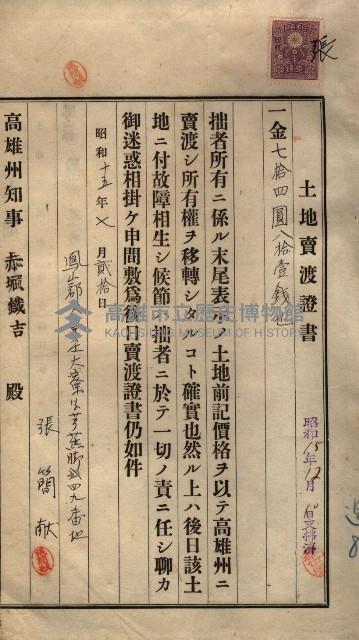 張
土地賣渡證書
一金七拾四圓八拾壹錢也
拙者所有ニ係ル末尾表示ノ土地前記價格ヲ以テ高雄州ニ
賣渡シ所有權ヲ移轉シタルコト確實也然ル上ハ後日該土
地ニ付故障相生シ候節ハ拙者ニ於テ一切ノ責ニ任シ聊カ
御迷惑相掛ケ申間敷爲後日賣渡證書仍如件
昭和十五年七月貳拾日
鳳山郡大寮庄芎蕉脚四九番地
張簡猷
高雄州知事 赤堀鐵吉 殿
昭和15年12月 日受
高雄市立歷史博物館
KAOHSIUNG MUSEUM OF HISTORY